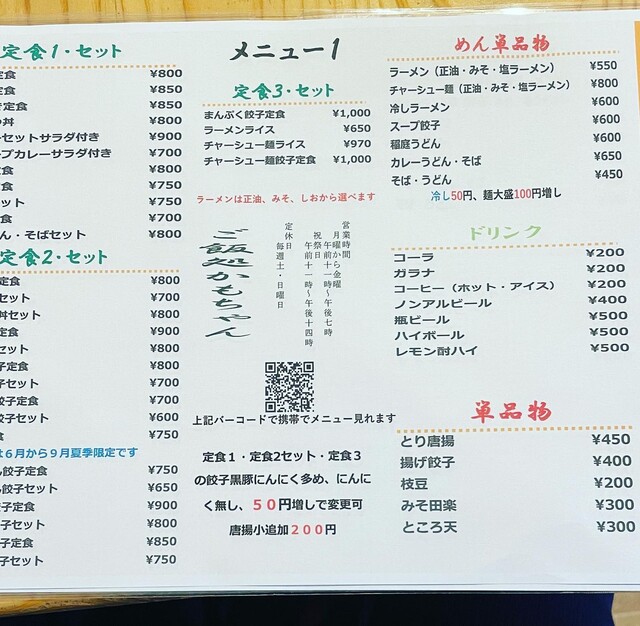 定食1・セット
定食 ¥800
定食 ¥850
定食 ¥850
丼 ¥800
セットサラダ付き ¥900
プカレーサラダ付き ¥700
定食 ¥800
定食 ¥750
ット ¥750
食 ¥700
ん・そばセット ¥800
定食2・セット
定食 ¥800
セット ¥700
丼セット ¥800
定食 ¥900
セット ¥800
子定食 ¥800
子セット ¥700
餃子定食 ¥700
餃子セット ¥600
食 ¥750
は６月から９月夏季限定です
餃子定食 ¥750
餃子セット ¥650
子定食 ¥900
子セット ¥800
子定食 ¥850
子セット ¥750
メニュー1
定食3・セット
まんぷく餃子定食 ¥1,000
ラーメンライス ¥650
チャーシュー麺ライス ¥970
チャーシュー麺餃子定食 ¥1,000
ラーメンは正油、みそ、しおから選べます
営業時間
月曜から金曜
午前十一時～午後七時
祝祭日
午前十一時～午後十四時
定休日
毎週土・日曜日
ご飯処かもちゃん
上記バーコードで携帯でメニュー見れます
定食１・定食2セット・定食３
の餃子黒豚にんにく多め、にんに
く無し、５０円増しで変更可
唐揚小追加２００円
めん単品物
ラーメン（正油・みそ・塩ラーメン） ¥550
チャーシュー麺（正油・みそ・塩ラーメン） ¥800
冷しラーメン ¥600
スープ餃子 ¥600
稲庭うどん ¥600
カレーうどん・そば ¥650
そば・うどん ¥450
冷し50円、麺大盛100円増し
ドリンク
コーラ ¥200
ガラナ ¥200
コーヒー（ホット・アイス） ¥200
ノンアルビール ¥400
瓶ビール ¥500
ハイボール ¥500
レモン酎ハイ ¥500
単品物
とり唐揚 ¥450
揚げ餃子 ¥400
枝豆 ¥200
みそ田楽 ¥300
ところ天 ¥300